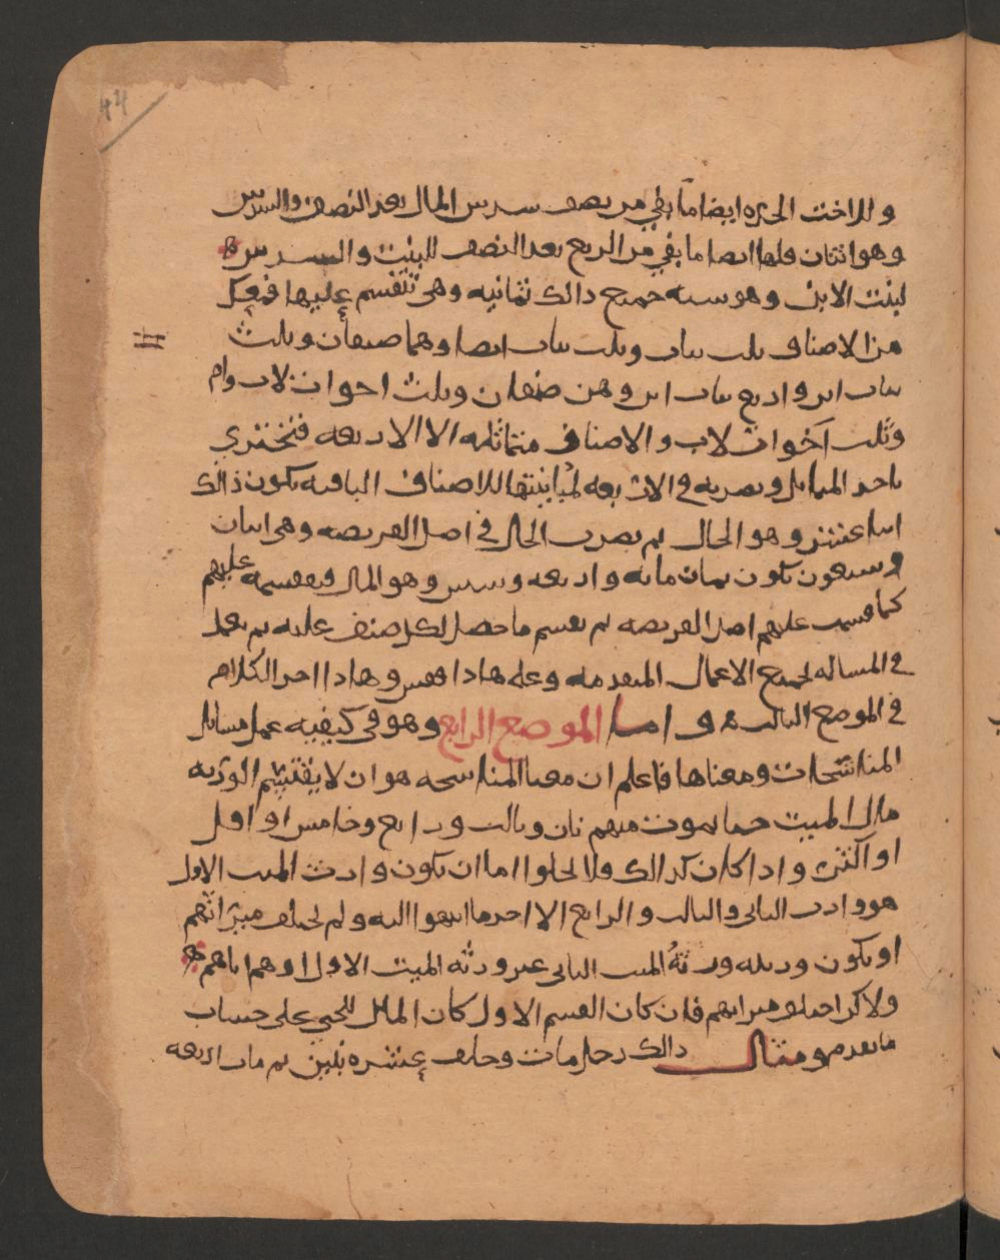 44
وللاخت الحره ايضا ما بقي من نصف سدس المال بعد النصف والسدس
وهو اثنان فلها ايضا ما بقي من الربع بعد النصف للبنت والسدس
لبنت الابن وهو سته جميع ذالك ثمانيه وهي تنقسم عليها فمعك
من الاصناف ثلث بنات وثلث بنات ايضا وهما صنفان وثلث
بنات ابن واربع بنات ابن وهن صنفان وثلث اخوات لاب وام
وثلث اخوات لاب والاصناف متماثله الا الاربعه فتجتزي
باحد المتماثل وتضربه في الاربعه لمباينتها للاصناف الباقيه يكون ذالك
اثنا عشر وهو الحال ثم تضرب الحال في اصل الفريضه وهي اثنان
وسبعون تكون ثمان مائه واربعه وستين وهو المال فتقسمه عليهم
كما قسمت عليهم اصل الفريضه ثم تقسم ما حصل لكل صنف عليه ثم تعمل
في المساله لجميع الاعمال المتقدمه وعلى هاذا فقس وهاذا اخر الكلام
في الموضع الثالث واما الموضع الرابع وهو في كيفيه عمل مسائل
المناسخات ومعناها فاعلم ان معنا المناسخه هو ان لا يقتسم الورثه
مال الميت حتا يموت منهم ثان وثالث ورابع وخامس او اقل
او اكثر واذا كان كذالك فلا يخلوا اما ان يكون وارث الميت الاول
هو وارث الثاني والثالث والرابع الا اخر ما انتهوا اليه ولم يختلف ميراثهم
او يكون ورثه ورثة الميت الثاني غير ورثه الميت الاول او هم اياهم
ولاكن اختلف ميراثهم فان كان القسم الاول كان المال للحي على حساب
ما تقدم ومثال ذالك رجل مات وخلف عشره بنين ثم مات اربعه